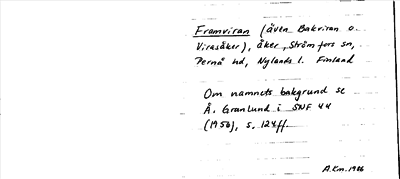 Framviran (även Bakviran o.
Viråsåker), åker, Strömfors sn,
Pernå hd, Nylands l. Finland
Om namnets bakgrund se
Å. Granlund i SNF 44
(1956), s. 124ff.
A.Km. 1986